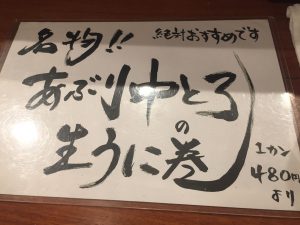 名物!!
絶対おすすめです
あぶり中とろ
の
生うに巻
1カン
480円
より